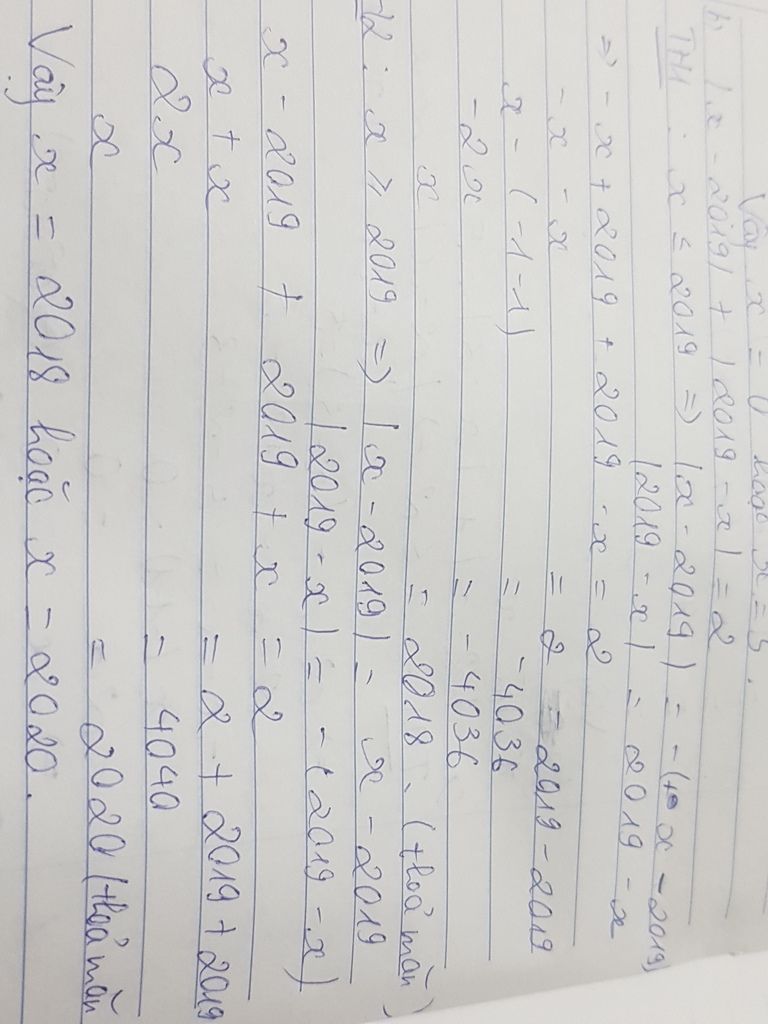 Vậy x = 0 hoặc x = 5.
h, |x - 2019| + |2019 - x| = 2
TH1 : x = 2019 => |x - 2019| = -(x - 2019)
|2019 - x| = 2019 - x
=> - x + 2019 + 2019 - x = 2
- x - x = 2 - 2019 - 2019
x - (-1-1) = - 4036
- 2x = - 4036
x = 2018. (thoả mãn)
x > 2019 => |x - 2019| = x - 2019
|2019 - x| = - (2019 - x)
x - 2019 + 2019 + x = 2
x + x = 2 + 2019 + 2019
2x = 4040
x = 2020 (thoả mãn
Vậy x = 2018 hoặc x = 2020.